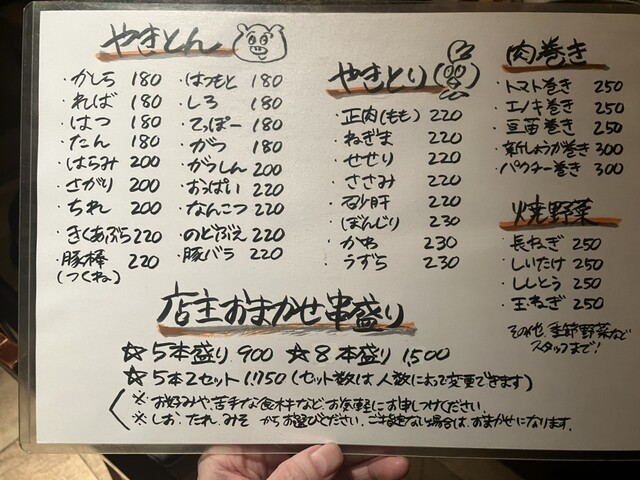 やきとん
・かしら 180
・ればー 180
・はつ 180
・たん 180
・はらみ 200
・さがり 200
・ちれ 200
・きくあぶら 220
・豚棒 220
(つくね)
・はつもと 180
・しろ 180
・てっぽー 180
・がつ 180
・がつしん 200
・おっぱい 220
・なんこつ 220
・のどぶえ 220
・豚バラ 220
やきとり
・正肉(もも) 220
・ねぎま 220
・せせり 220
・ささみ 220
・砂肝 220
・ぼんじり 230
・かわ 230
・うずら 230
肉巻き
・トマト巻き 250
・エノキ巻き 250
・豆苗巻き 250
・新しょうが巻き 300
・パクチー巻き 300
焼野菜
・長ねぎ 250
・しいたけ 250
・ししとう 250
・玉ねぎ 250
その他 季節野菜など
スタッフまで!
店主おまかせ串盛り
☆5本盛り 900 ☆8本盛り 1,500
☆5本2セット 1,750 (セット数は人数によって変更できます)
※お好みや、苦手な食材などお気軽にお申しつけください
※しお、たれ、みそ からお選びください。ご指定ない場合は、おまかせになります。